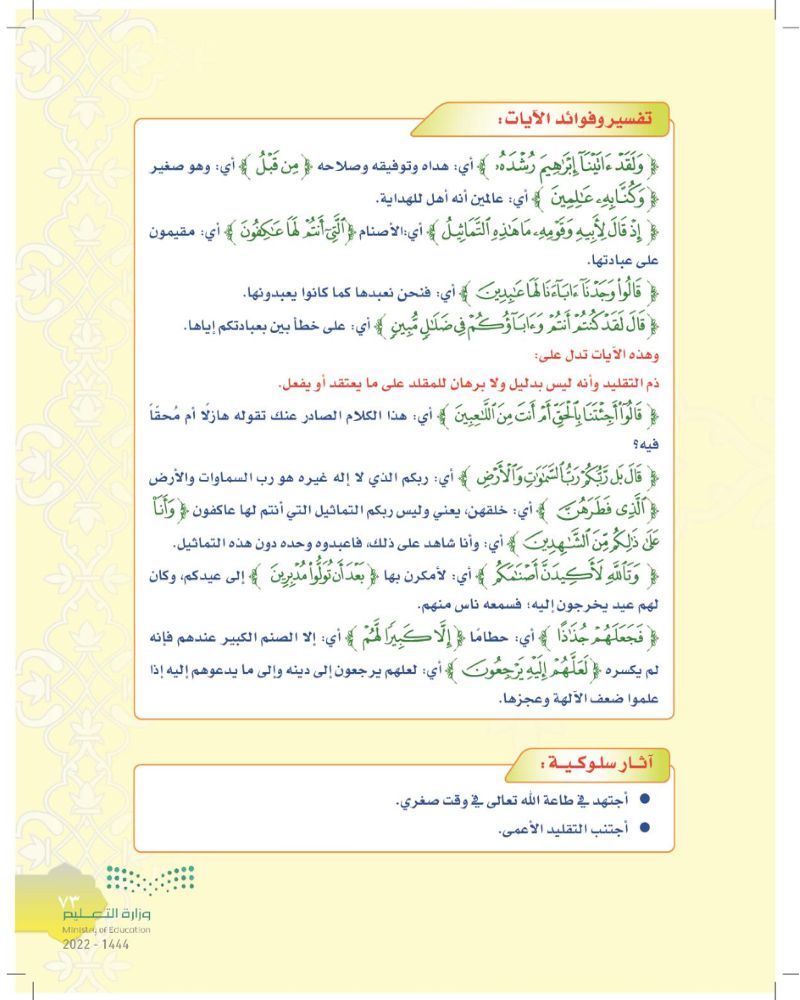 تفسير وفوائد الآيات:
﴿ وَلَقَدۡ ءَاتَيۡنَآ إِبۡرَٰهِيمَ رُشۡدَهُۥ ﴾ أي: هداه وتوفيقه وصلاحه ﴿ مِن قَبۡلُ ﴾ أي: وهو صغير
﴿ وَكُنَّا بِهِۦ عَٰلِمِينَ ﴾ أي: عالمين أنه أهل للهداية.
﴿ إِذۡ قَالَ لِأَبِيهِ وَقَوۡمِهِۦ مَا هَٰذِهِ ٱلتَّمَاثِيلُ ﴾ أي:الأصنام ﴿ ٱلَّتِيٓ أَنتُمۡ لَهَا عَٰكِفُونَ ﴾ أي: مقيمون
على عبادتها.
﴿ قَالُواْ وَجَدۡنَآ ءَابَآءَنَا لَهَا عَٰبِدِينَ ﴾ أي: فنحن نعبدها كما كانوا يعبدونها.
﴿ قَالَ لَقَدۡ كُنتُمۡ أَنتُمۡ وَءَابَآؤُكُمۡ فِي ضَلَٰلٖ مُّبِينٖ ﴾ أي: على خطأ بين بعبادتكم إياها.
وهذه الآيات تدل على:
ذم التقليد وأنه ليس بدليل ولا برهان للمقلد على ما يعتقد أو يفعل.
﴿ قَالُوٓاْ أَجِئۡتَنَا بِٱلۡحَقِّ أَمۡ أَنتَ مِنَ ٱللَّٰعِبِينَ ﴾ أي: هذا الكلام الصادر عنك تقوله هازلًا أم مُحقًا
فيه؟
﴿ قَالَ بَل رَّبُّكُمۡ رَبُّ ٱلسَّمَٰوَٰتِ وَٱلۡأَرۡضِ ﴾ أي: ربكم الذي لا إله غيره هو رب السماوات والأرض
﴿ ٱلَّذِي فَطَرَهُنَّ ﴾ أي: خلقهن، يعني وليس ربكم التماثيل التي أنتم لها عاكفون ﴿ وَأَنَا۠
عَلَىٰ ذَٰلِكُم مِّنَ ٱلشَّٰهِدِينَ ﴾ أي: وأنا شاهد على ذلك، فاعبدوه وحده دون هذه التماثيل.
﴿ وَتَٱللَّهِ لَأَكِيدَنَّ أَصۡنَٰمَكُم ﴾ أي: لأمكرن بها ﴿ بَعۡدَ أَن تُوَلُّواْ مُدۡبِرِينَ ﴾ إلى عيدكم، وكان
لهم عيد يخرجون إليه؛ فسمعه ناس منهم.
﴿ فَجَعَلَهُمۡ جُذَٰذًا ﴾ أي: حطامًا ﴿ إِلَّا كَبِيرٗا لَّهُمۡ ﴾ أي: إلا الصنم الكبير عندهم فإنه
لم يكسره ﴿ لَعَلَّهُمۡ إِلَيۡهِ يَرۡجِعُونَ ﴾ أي: لعلهم يرجعون إلى دينه وإلى ما يدعوهم إليه إذا
علموا ضعف الآلهة وعجزها.
آثار سلوكية:
● أجتهد في طاعة الله تعالى في وقت صغري.
● أجتنب التقليد الأعمى.
٧٣
وزارة التعليم
Ministry of Education
2022 - 1444